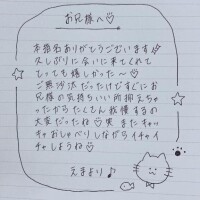 お兄様へ♡
本指名ありがとうございます
久しぶりに会いに来てくれて
とっても嬉しかった〜♡
ご無沙汰だったけどすぐにお
兄様の気持ちいい所抑えちゃ
ったからたくさん我慢するの
大変だったね♡ 笑 またギュッ
おしゃべりしながらイチャイ
チャしようね♡
えまより♪